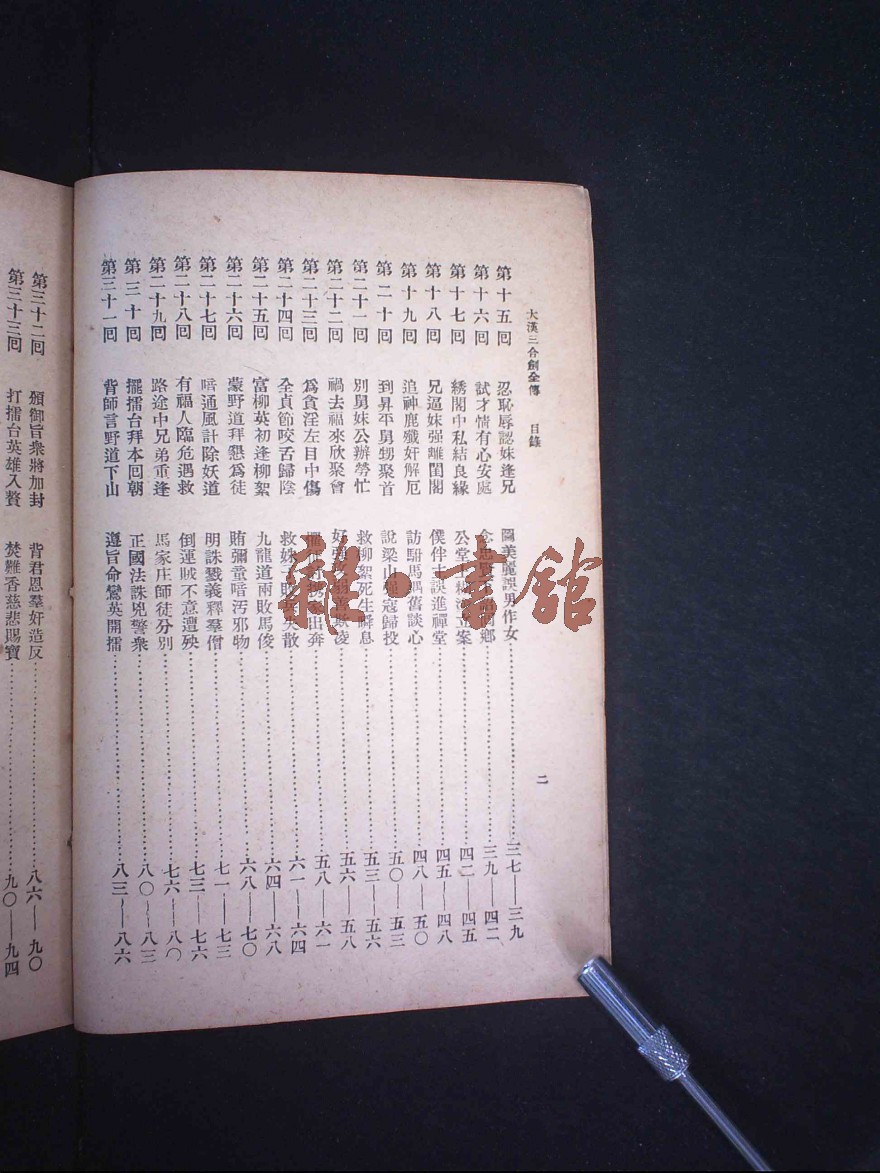 大漢三合劍全傳 目錄 二
第十五回 忍恥辱認妹逢兄 圖美麗誤男作女 三七—三九
第十六回 試才情有心安處 三九—四二
第十七回 綉閣中私結良緣 公堂上 立案 四二—四五
第十八回 兄逼妹强離閨閣 僕伴主誤進禪堂 四五—四八
第十九回 追神鹿殲奸解厄 訪駙馬 舊談心 四八—五〇
第二十回 到昇平舅甥聚首 說梁山 寇歸投 五〇—五三
第二十一回 別舅妹公辦勞忙 救柳絮死生瞬息 五三—五六
第二十二回 禍去福來欣聚會 好 善欺凌 五六—五八
第二十三回 爲貪淫左目中傷 家出奔 五八—六一
第二十四回 全貞節咬舌歸陰 救姝 敗 失散 六一—六四
第二十五回 富柳英初逢柳絮 九龍道兩敗馬俊 六四—六八
第二十六回 蒙野道拜懇爲徒 賄彌童暗汚邪物 六八—七〇
第二十七回 暗通風計除妖道 明誅戮義釋羣僧 七一—七三
第二十八回 有福人臨危遇救 倒運賊不意遭殃 七三—七六
第二十九回 路途中兄弟重逢 馬家庄師徒分別 七六—八〇
第三十回 擺擂台拜本回朝 正國法誅兇警衆 八〇—八三
第三十一回 背師言野道下山 遵旨命鸞英開擂 八三—八六
第三十二回 頒御旨衆將加封 背君恩羣奸造反 八六—九〇
第三十三回 打擂台英雄入贅 焚難香慈悲賜寶 九〇—九四
雜·書館